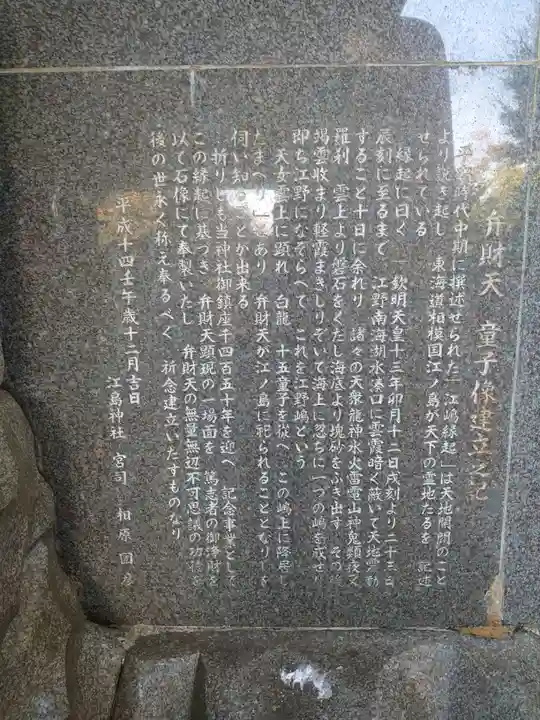 弁財天 童子像建立之記
平安時代中期に撰述せられた「江嶋縁起」は天地開闢のこと
より説き起し 東海道相模国江ノ島が天下の霊地たるを 記述
せられている
縁起に曰く 「欽明天皇十三年卯月十二日戌刻より二十三日
辰刻に至るまで 江野南海湖水湊口に雲霞暗く蔽いて天地震動
すること十日に余れり 諸々の天衆龍神水火雷電山神鬼類夜叉
羅刹 雲上より磐石をくだし海底より塊砂をふき出す その後
曷雲收まり軽霞まきしりぞいて海上に忽ちに一つの嶋を成せり
即ち江野になぞらへて これを江野嶋という
天女雲上に顕れ 白龍 十五童子を従へ この嶋上に降居し
たまへり」とあり 弁財天が江ノ島に祀られることとなりしを
伺い知ることが出来る
折りしも当神社御鎮座千四百五十年を迎へ 記念事業として
この縁起に基づき 弁財天顕現の一場面を 篤志者の御浄財を
以て石像にて奉製いたし 弁財天の無量無辺不可思議の功徳を
後の世永く称え奉るべく 祈念建立いたすものなり
平成十四壬午歳十二月吉日
江島神社 宮司 相原圀彦